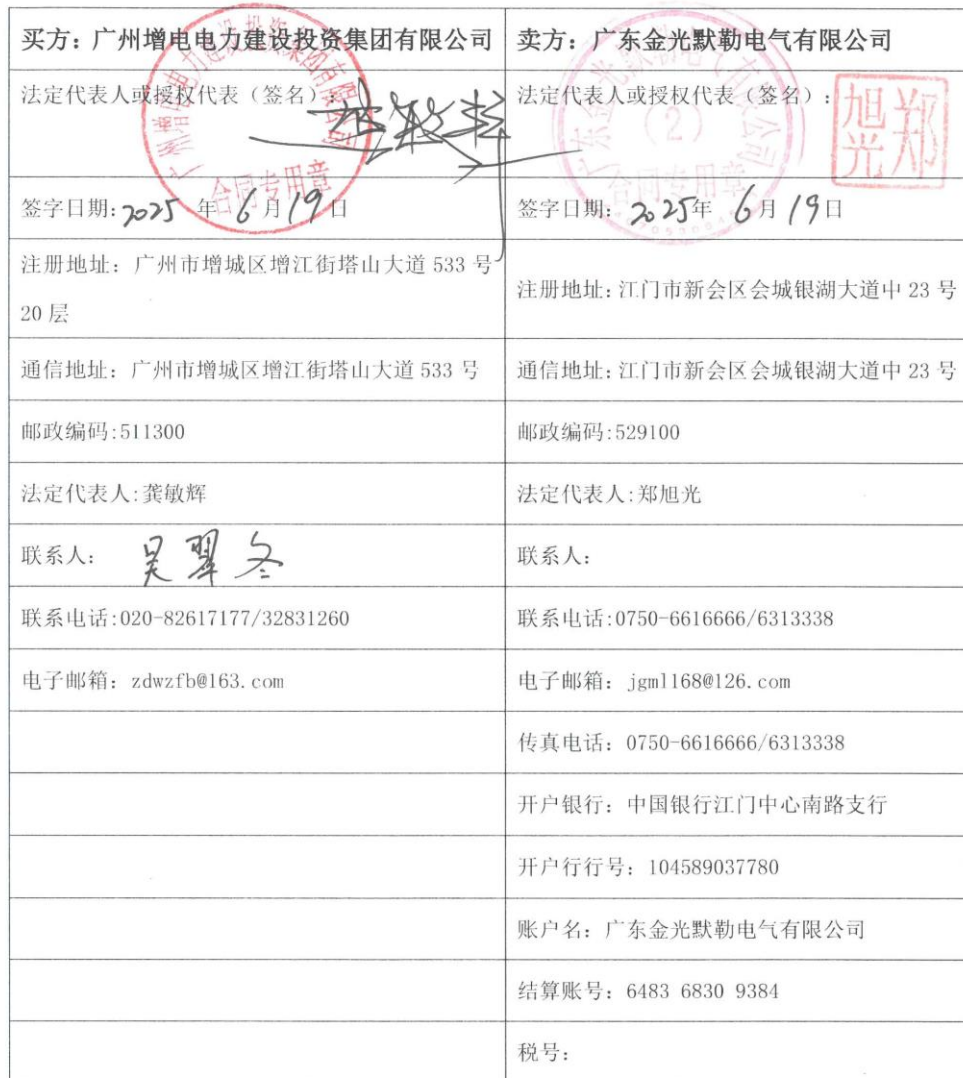 买方：广州增电电力建设投资集团有限公司
卖方：广东金光默勒电气有限公司
法定代表人或授权代表（签名）：
法定代表人或授权代表（签名）：
郑旭光
广州增电电力建设投资集团有限公司
合同专用章
广东金光默勒电气有限公司
（2）
合同专用章
签字日期：2025 年 6 月 19 日
签字日期：2025年 6月 19日
注册地址：广州市增城区增江街塔山大道 533 号
20 层
注册地址：江门市新会区会城银湖大道中 23 号
通信地址：广州市增城区增江街塔山大道 533 号
通信地址：江门市新会区会城银湖大道中 23 号
邮政编码:511300
邮政编码:529100
法定代表人:龚敏辉
法定代表人:郑旭光
联系人： 吴翠冬
联系人：
联系电话:020-82617177/32831260
联系电话:0750-6616666/6313338
电子邮箱：zdwzfb@163.com
电子邮箱：jgml168@126.com
传真电话：0750-6616666/6313338
开户银行：中国银行江门中心南路支行
开户行行号：104589037780
账户名：广东金光默勒电气有限公司
结算账号：6483 6830 9384
税号：